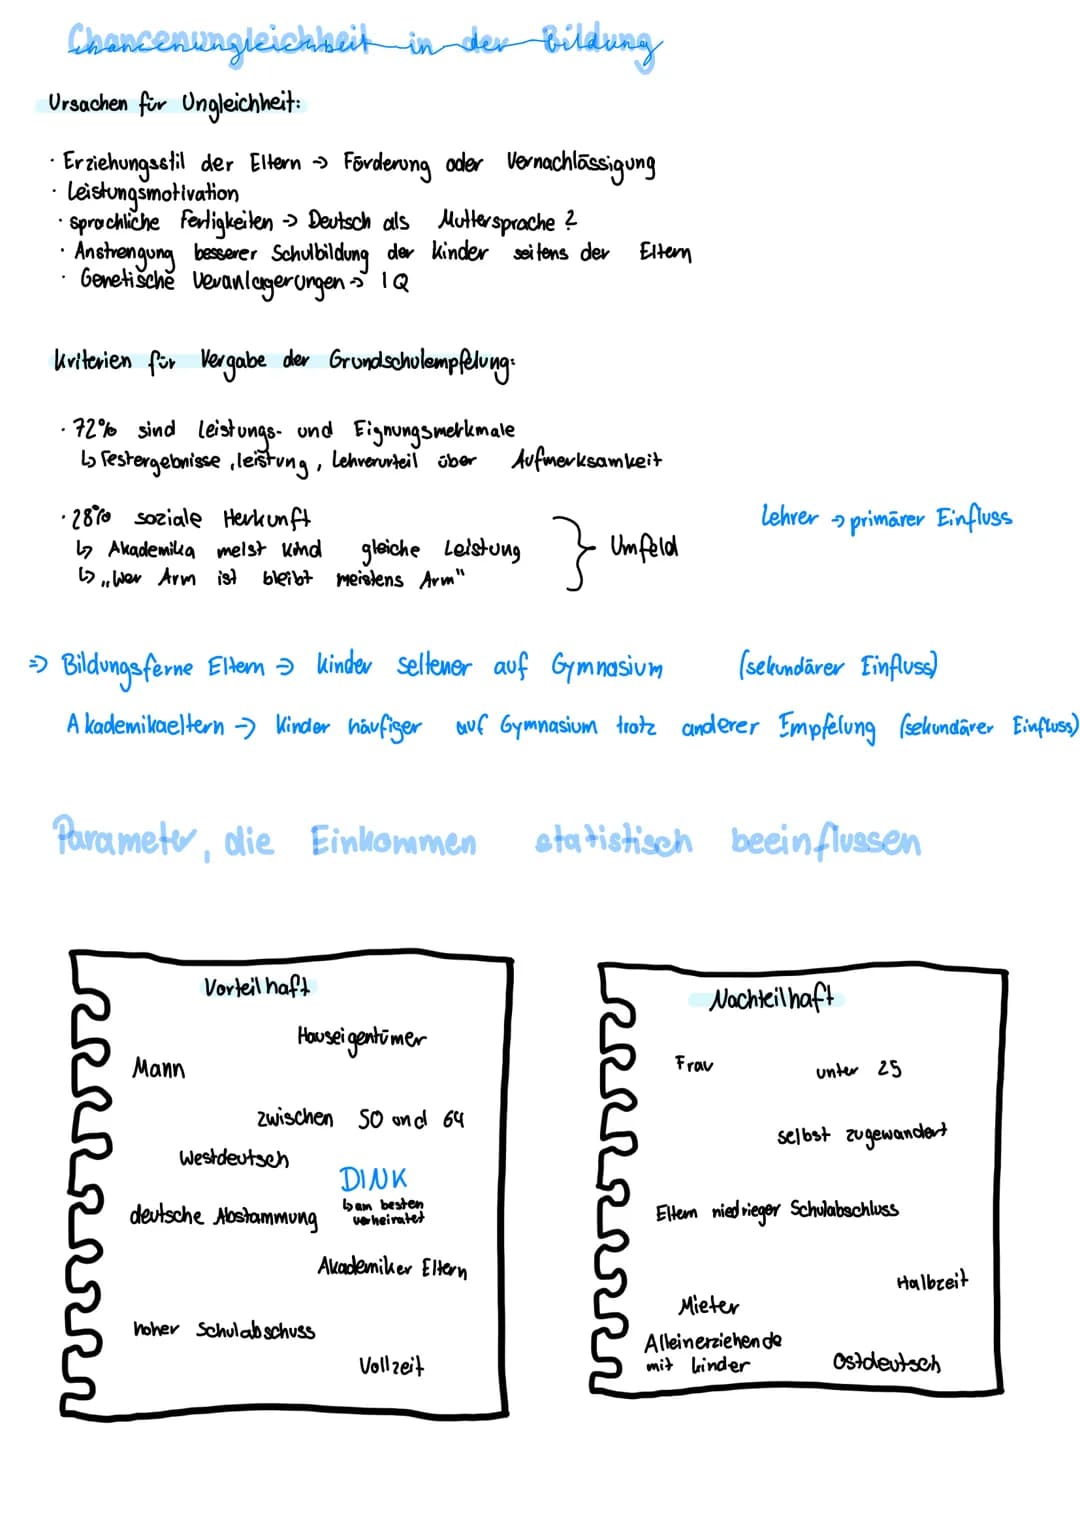 Chancenungleichheit in der Bildung
Ursachen für Ungleichheit:
· Erziehungsstil der Eltern → Förderung oder Vernachlässigung
· Leistungsmotivation
· sprachliche Fertigkeiten → Deutsch als Muttersprache ?
· Anstrengung besserer Schulbildung der kinder seitens der Eltern
· Genetische Veranlagerungen → IQ
Kriterien für Vergabe der Grundschulempfelung:
· 72% sind Leistungs- und Eignungsmerkmale
↳ Testergebnisse, leistung, Lehrerurteil über Aufmerksamkeit
· 28% soziale Herkunft
↳ Akademika meist Kind gleiche Leistung
↳ „Wer Arm ist bleibt meistens Arm"
} Umfeld
Lehrer → primärer Einfluss
⇒ Bildungsferne Eltern → kinder seltener auf Gymnasium (sekundärer Einfluss)
Akademikaeltern → Kinder häufiger auf Gymnasium trotz anderer Empfelung (sekundärer Einfluss)
Parameter, die Einkommen statistisch beeinflussen
Vorteilhaft
Hauseigentümer
Mann
zwischen 50 und 64
Westdeutsch
DINK
↳ am besten
verheiratet
deutsche Abstammung
Akademiker Eltern
hoher Schulabschuss
Vollzeit
Nachteilhaft
Frau
unter 25
selbst zugewandert
Eltern niedrieger Schulabschluss
Halbzeit
Mieter
Alleinerziehende
mit kinder
Ostdeutsch